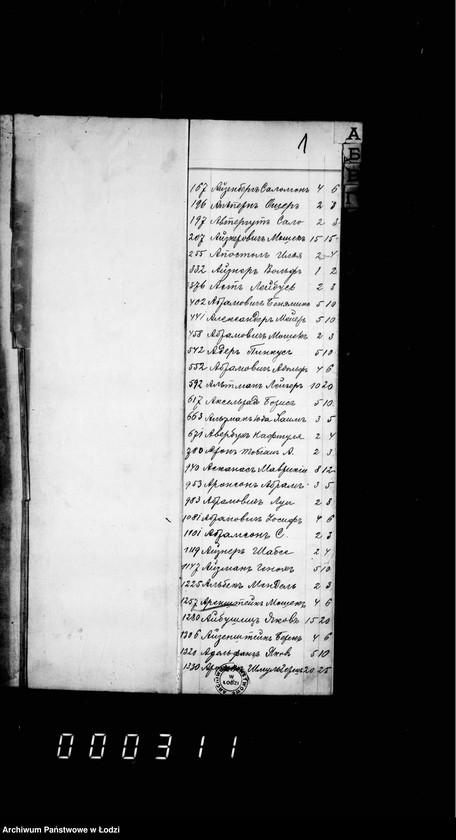 1
А
Б
В
Г
167 Айзенбергъ Саломонъ 4 6
196 Альпернъ Ошеръ 2 3
197 Автергутъ Сало 2 3
207 Айзнеровичъ Мошекъ 15 15
255 Апостолъ Илья 2 4
332 Айзнеръ Вольфъ 1 2
376 Астъ Лейбусь 2 3
402 Абрамовичъ Беньяминъ 5 10
441 Александеръ Мейеръ 5 10
458 Абрамовичъ Мошекъ 2 3
542 Адеръ Пинкусъ 5 10
552 Абрамовичъ Адольфъ 4 6
592 Альтманъ Лейзеръ 10 20
617 Аксельрадъ Борисъ 5 10
663 Юда Хаимъ 3 5
671 Авербухъ Нафтуля 2 4
Аронъ Тобіашъ А. 2 3
940 Асканасъ Маврикій 8 12
953 Аронсонъ Абрамъ 3 5
983 Абрамовичъ Луи 2 3
1081 Абрамовичъ Іосифъ 4 6
1101 Абрамсонъ С. 2 3
1119 Айзнеръ Шабсе 2 4
1147 Айзманъ 5 10
1225 Альбекъ Мендель 2 3
1257 Аренштейнъ Мошекъ 4 6
1280 Айбушицъ Яковъ 15 20
1306 Айзенштейнъ Берекъ 4 6
1320 Адельфангъ Яковъ 5 10
1330 20 25
ARCHIWUM PAŃSTWOWE W ŁODZI
000311
Archiwum Państwowe w Łodzi